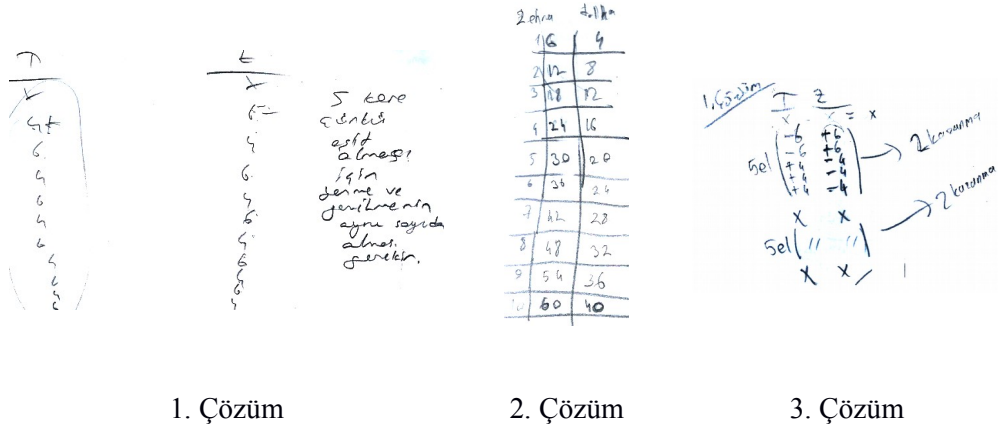 T
t
x
x
4 t
6
6
4
4
6
6
4
6
4
4
6
6
4
4
6
6
4
5 kere
çünkü
eşit
olması
için
yenme ve
yenilmenin
aynı sayıda
olması
gerekir.
Zehra
1 | 6 | 4
2 | 12 | 8
3 | 18 | 12
4 | 24 | 16
5 | 30 | 20
6 | 36 | 24
7 | 42 | 28
8 | 48 | 32
9 | 54 | 36
60 | 40
1. Çözüm
T Z
x = x
-6 +6
-6 +6
+4 -4
+4 -4
+4 -4
5el
2 kazanma
x x
5el ( " " )
2 kazanma
x x
1. Çözüm
2. Çözüm
3. Çözüm